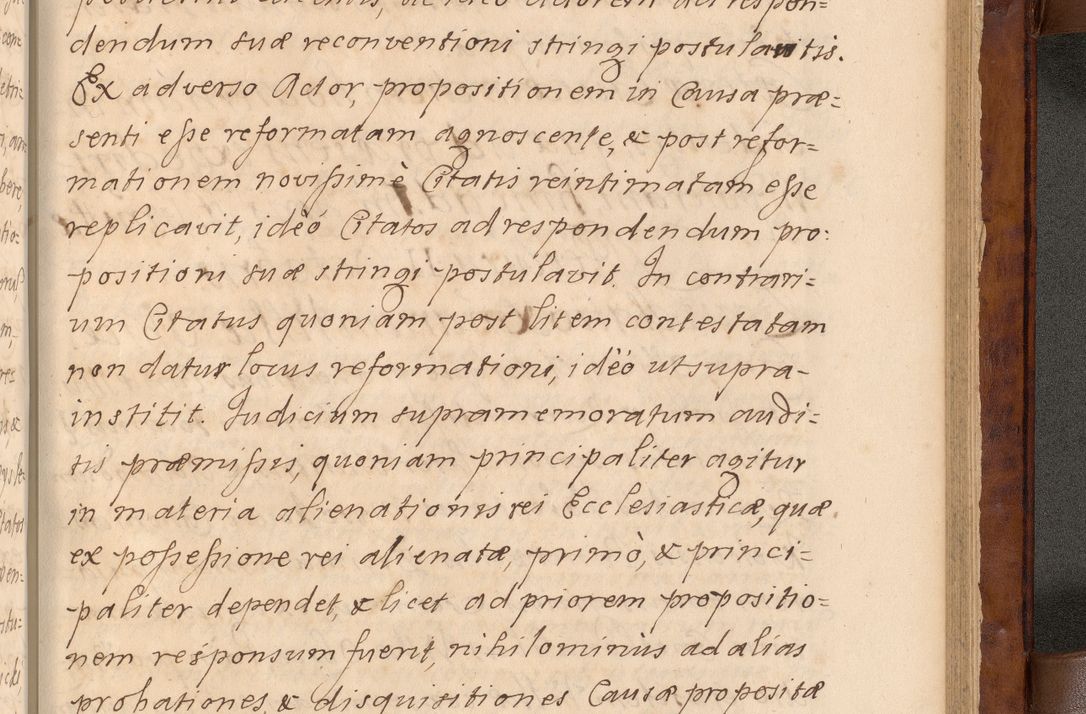 dendum suæ reconventioni stringi postulavitis.
Ex adverso Actor, propositionem in Causa præ=
senti esse reformatam agnoscente, & post refor=
mationem novissimè Citatis reintimatam esse
replicavit, ideò Citatos ad respondendum pro=
positioni suæ stringi postulavit. In contrari=
um Citatus quoniam post litem contestatam
non datur locus reformationi, ideò ut supra
institit. Iudicium supramemoratum audi=
tis præmissis, quoniam principaliter agitur
in materia alienationis rei Ecclesiasticæ, quæ
ex possessione rei alienatæ, primò, & princi=
paliter dependet, & licet ad priorem propositio=
nem responsum fuerit, nihilominùs ad alias
probationes, & disquisitiones Causæ propositæ